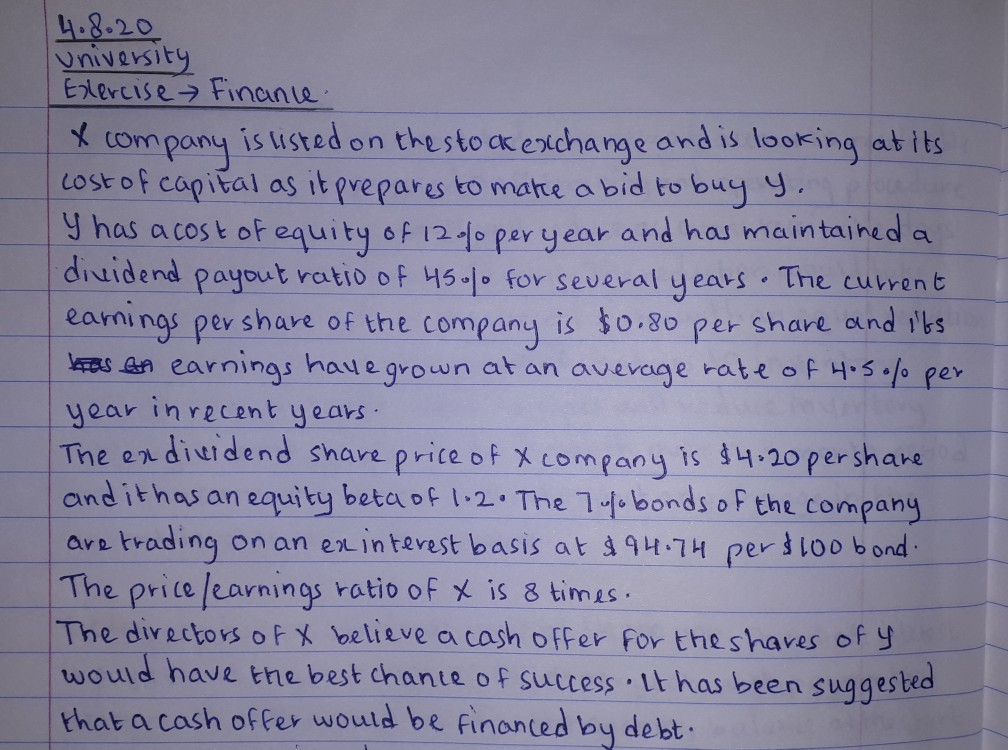 4.8.20
University
Exercise → Finance.
X company is listed on the stock exchange and is looking at its
cost of capital as it prepares to make a bid to buy Y.
Y has a cost of equity of 12% per year and has maintained a
dividend payout ratio of 45% for several years. The current
earnings per share of the company is $0.80 per share and its
has an earnings have grown at an average rate of 4.5% per
year in recent years.
The ex dividend share price of X company is $4.20 per share
and it has an equity beta of 1.2. The 7% bonds of the company
are trading on an ex interest basis at $94.74 per $100 bond.
The price/earnings ratio of X is 8 times.
The directors of X believe a cash offer for the shares of Y
would have the best chance of success. It has been suggested
that a cash offer would be financed by debt.